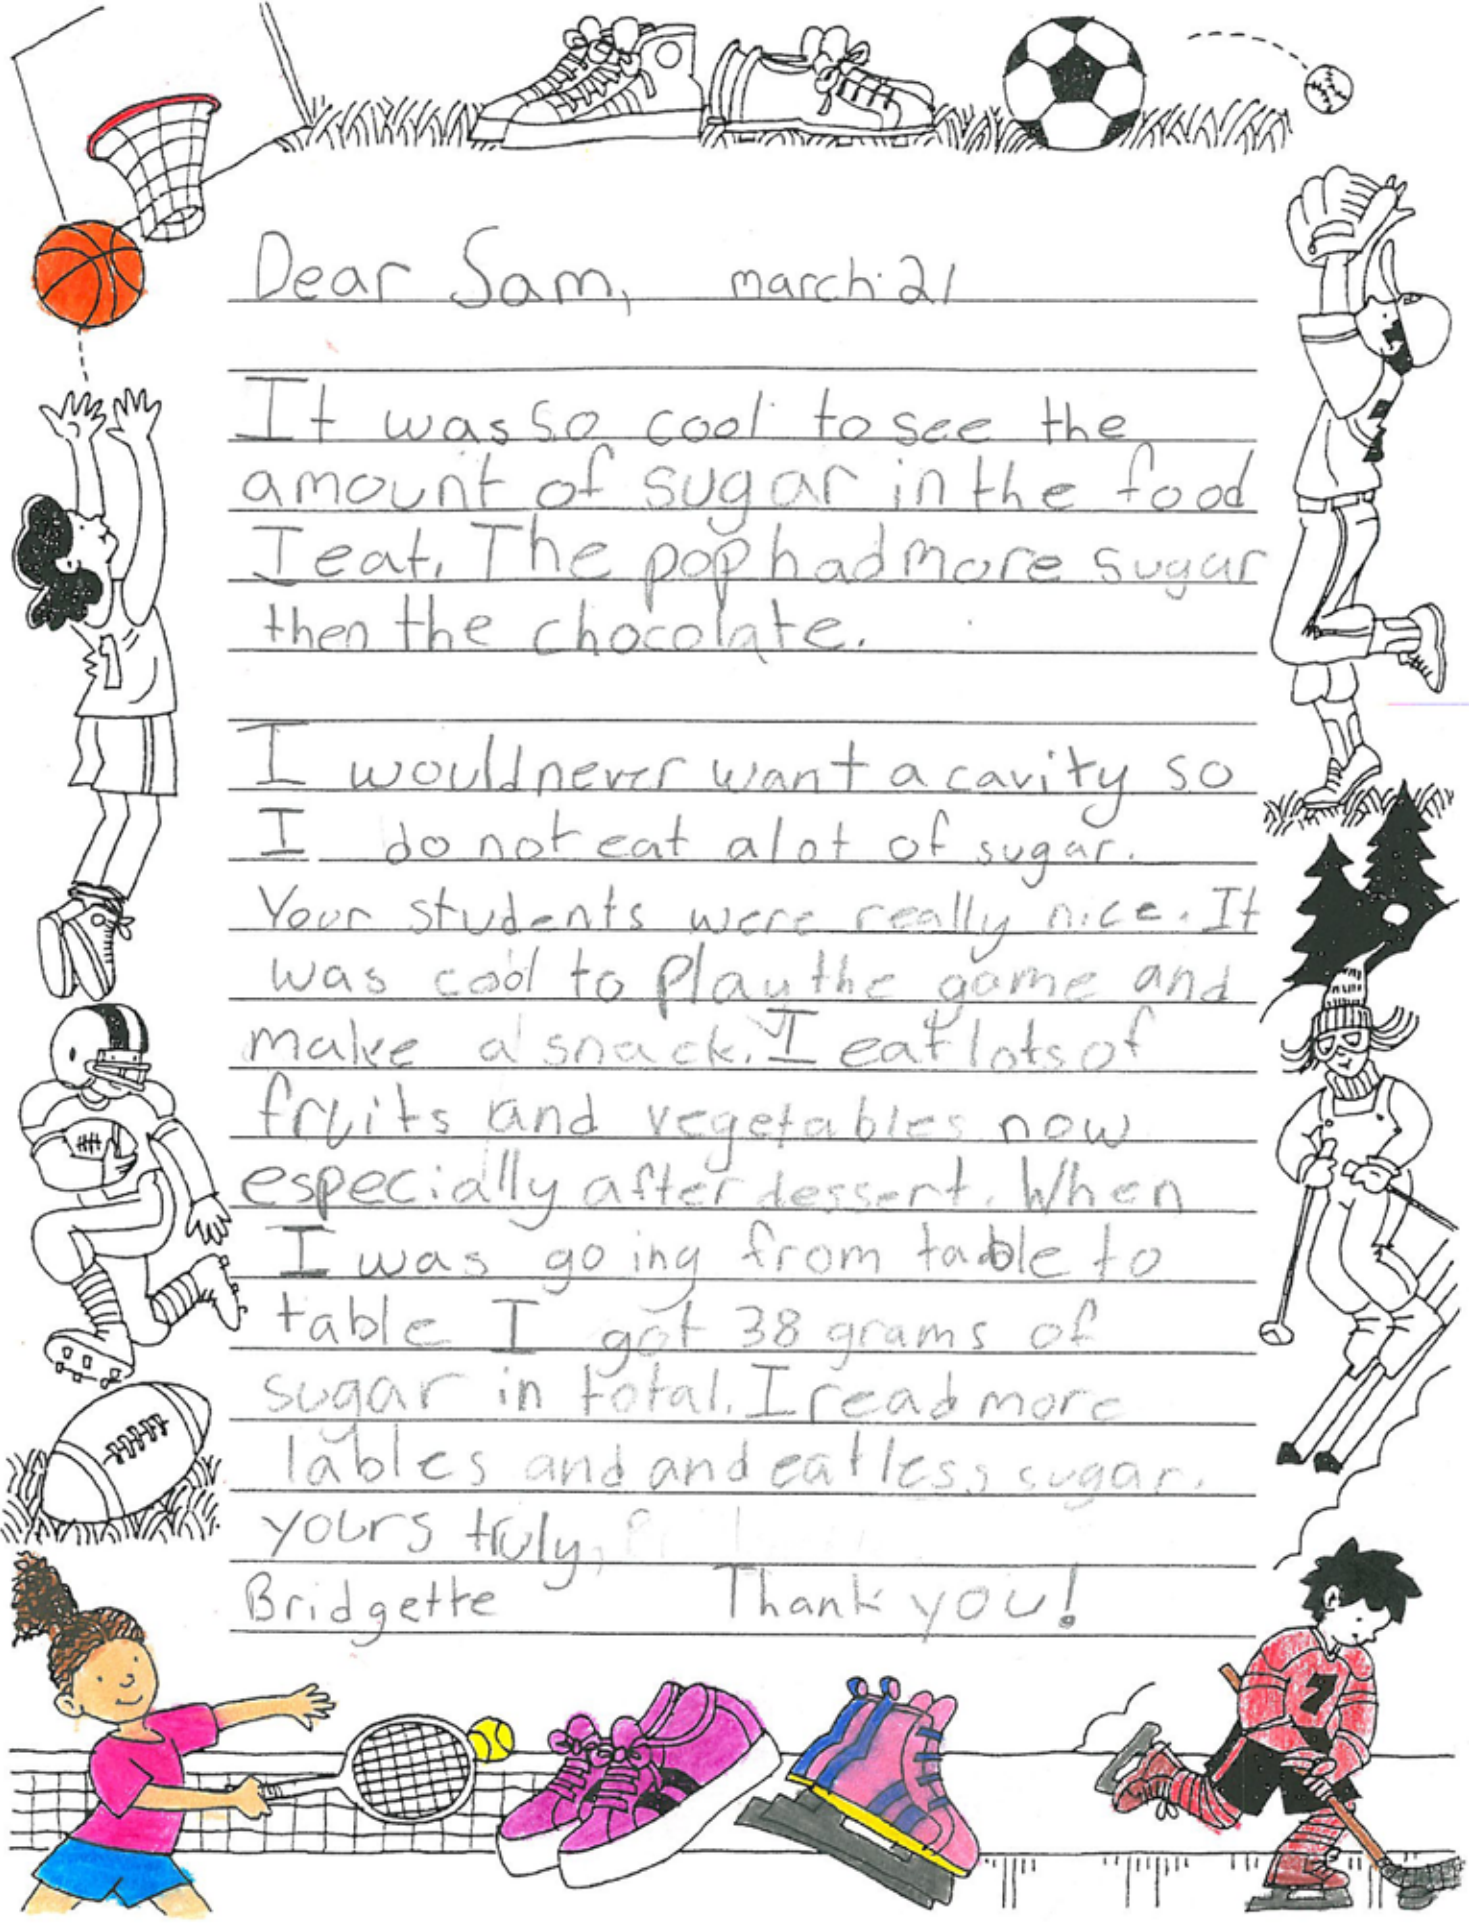 Dear Sam, march 21
It was so cool to see the
amount of sugar in the food
I eat. The pop had more sugar
then the chocolate.
I would never want a cavity so
I do not eat alot of sugar.
Your students were really nice. It
was cool to play the game and
make a snack. I eat lots of
fruits and vegetables now
especially after dessert. When
I was going from table to
table I got 38 grams of
sugar in total. I read more
lables and and eat less sugar.
yours truly,
Bridgette Thank you!